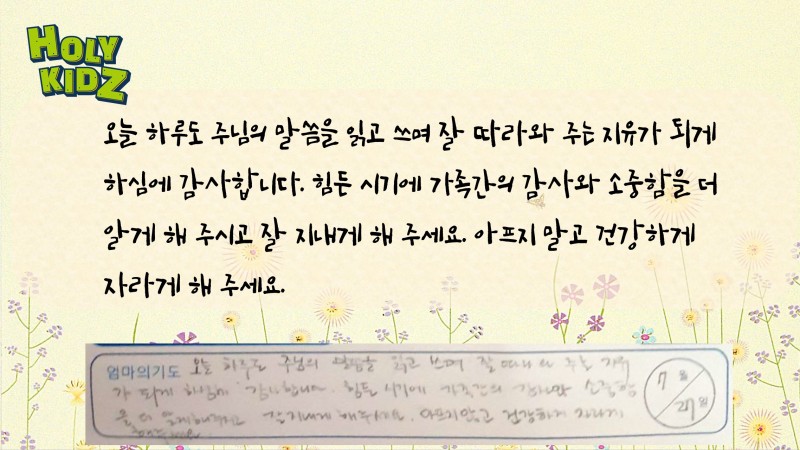 HOLY
KIDZ
오늘 하루도 주님의 말씀을 읽고 쓰며 잘 따라와 주는 지유가 되게
하심에 감사합니다. 힘든 시기에 가족간의 감사와 소중함을 더
알게 해 주시고 잘 지내게 해 주세요. 아프지 말고 건강하게
자라게 해 주세요.
엄마의기도 오늘 하루도 주님의 말씀을 읽고 쓰며 잘 따라와 주는 지유
가 되게 하심에 감사합니다. 힘든 시기에 가족간의 감사와 소중함
을 더 알게해주시고 잘지내게 해주세요. 아프지말고 건강하게 자라게
해주세요.
7월
27일